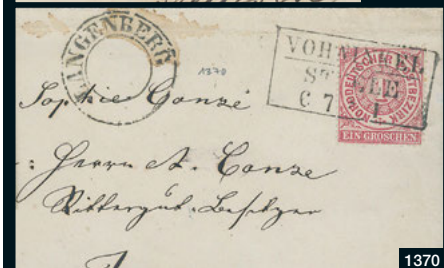 LANGENBERG
1370
VOHWINKEL
STEELE
C 7 I
NORDDEUTSCHER POSTBEZIRK
EIN GROSCHEN
Sophie Conze
: Herrn A. Conze
Rittergut-Besitzer
1370